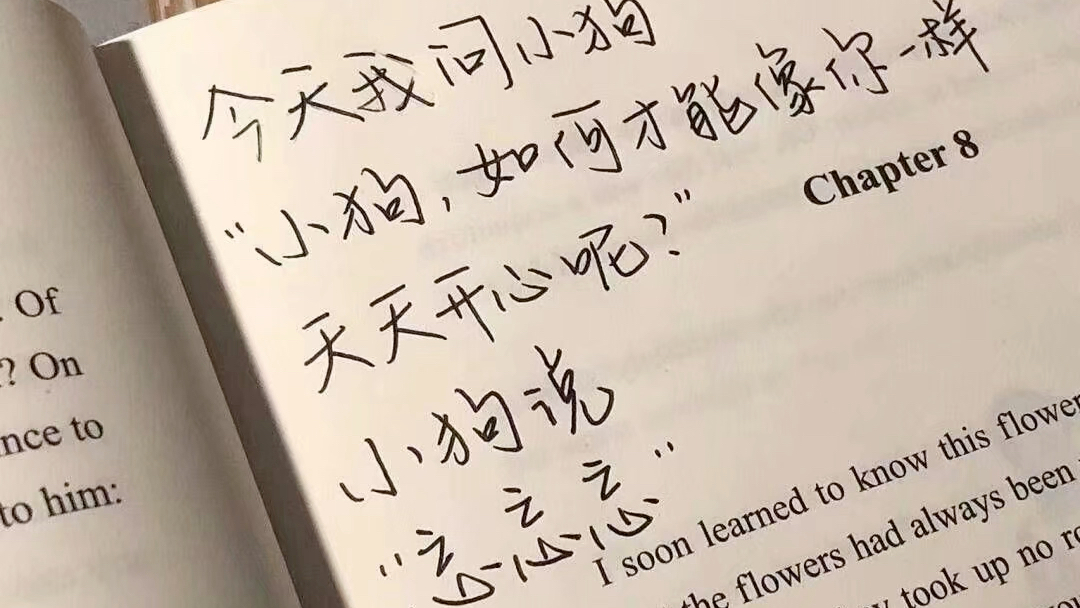 今天我问小狗
“小狗，如何才能像你一样
天天开心呢？”
小狗说
“忘忘忘”
. Of
? On
to
to him:
Chapter 8
I soon learned to know this flower
the flowers had always been
took up no